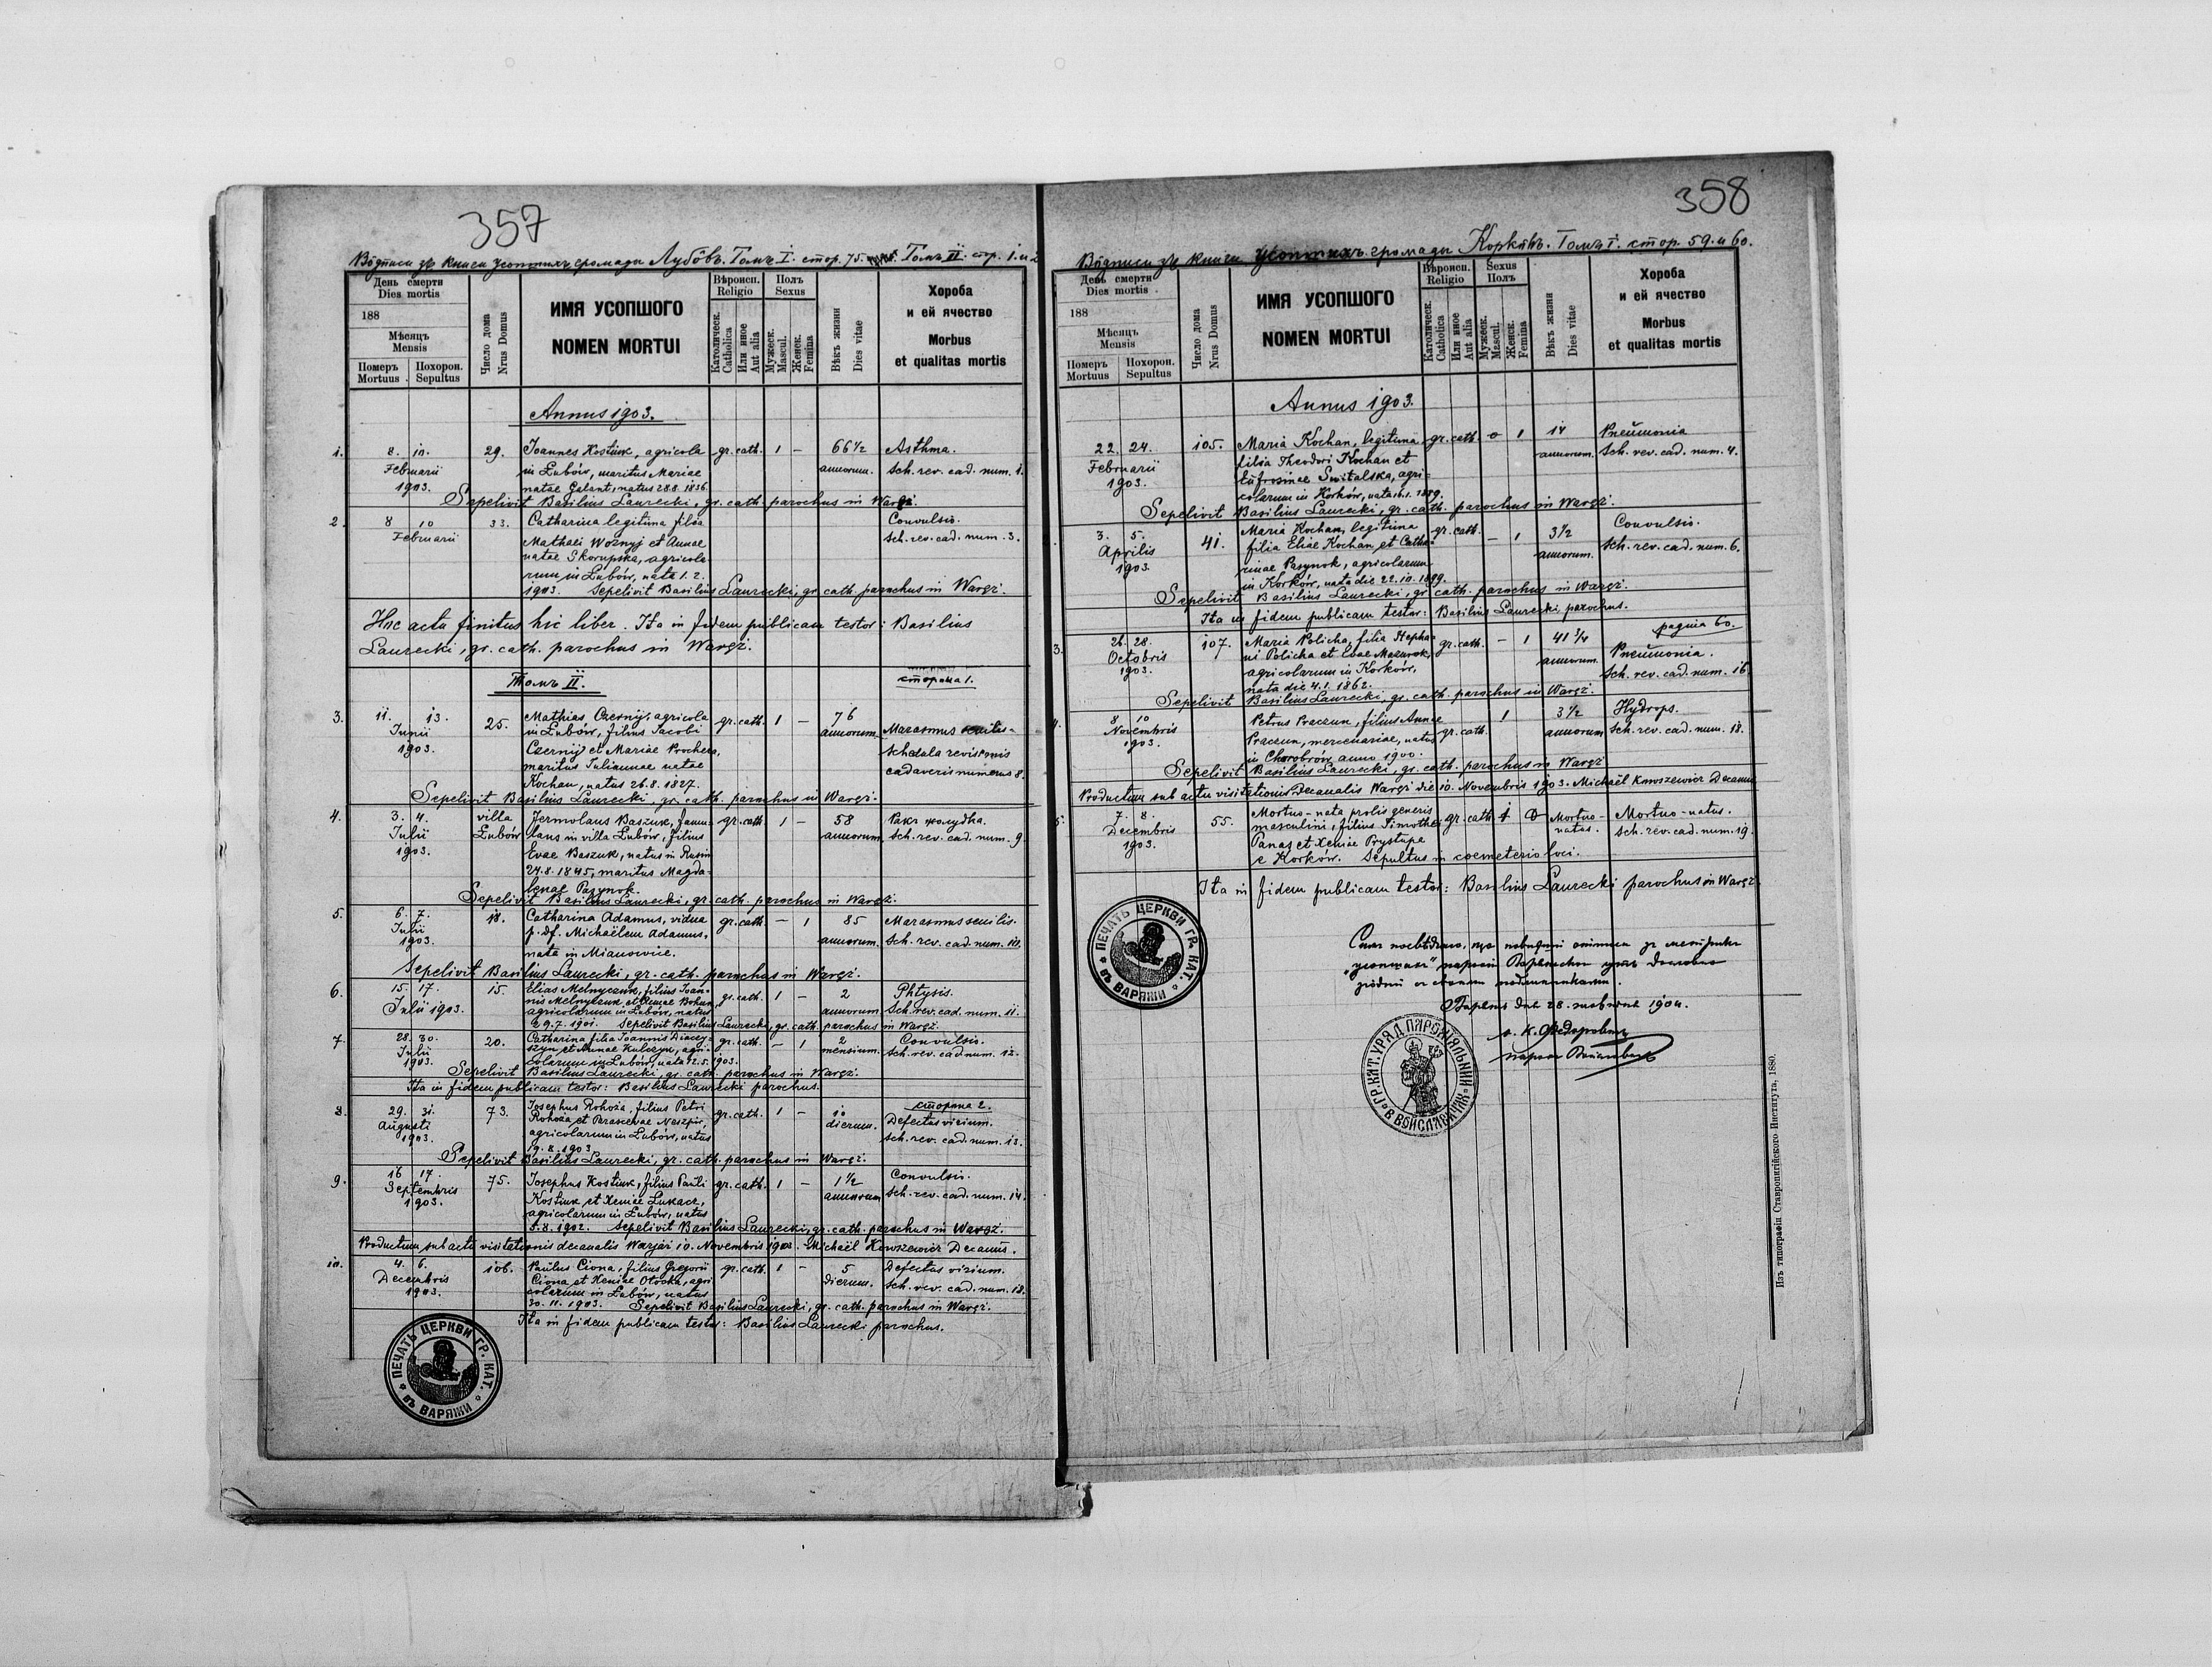 357
Во̂дписи зъ книги усопшихъ громады Лубо̂въ. Томъ I. стор. 75. Томъ II. стор. 1. и 2
День смерти
Dies mortis
188
Мѣсяцъ
Mensis
Померъ
Mortuus
Похорон.
Sepultus
Число дома
Nrus Domus
ИМЯ УСОПШОГО
NOMEN MORTUI
Вѣроисп.
Religio
Католическ.
Catholica
Или иное
Aut alia
Полъ
Sexus
Мужеск.
Mascul.
Женск.
Femina
Вѣкъ жизни
Dies vitae
Хороба
и ей ячество
Morbus
et qualitas mortis
Annus 1903.
1. 8. 10. 29. Joannes Kostiuk, agricola gr. cath. 1 – 66 1/2 Asthma.
Februarii in Łubów, maritus Mariae annorum. Sch. rev. cad. num. 1.
1903. natae Galant, natus 28.8.1836.
Sepelivit Basilius Laurecki, gr. cath. parochus in Waręż.
2. 8 10 33. Catharina legitima filia Convulsio.
Februarii Mathaei Woznyj et Annae Sch. rev. cad. num. 3.
natae Skorupska, agricola-
rum in Łubów, nata 1. 2.
1903. Sepelivit Basilius Laurecki, gr. cath. parochus in Waręż.
Hoc actu finitus hic liber. Ita in fidem publicam testor: Basilius
Laurecki, gr. cath. parochus in Waręż.
Томъ II. сторона 1.
3. 11. 13. 25. Mathias Czernij, agricola gr. cath. 1 – 76
Junii in Łubów, filius Jacobi annorum Marasmus senilis
1903. Czernij et Mariae Prochera, Schedula revisionis
maritus Juliannae natae cadaveris numerus 8.
Kochan, natus 26.8.1827.
Sepelivit Basilius Laurecki, gr. cath. parochus in Waręż.
4. 3. 4. villa Jermolaus Baszuk, famu- gr. cath. 1 – 58 Ракъ жолудка.
Julii Łubów lans in villa Łubów, filius annorum Sch. rev. cad. num. 9.
1903. Evae Baszuk, natus in Rusin
24.8.1845, maritus Magda-
lenae Pasynok.
Sepelivit Basilius Laurecki, gr. cath. parochus in Waręż.
5. 6. 7. 18. Catharina Adamus, vidua gr. cath. – 1 85 Marasmus senilis.
Julii p. df. Michaëlem Adamus, annorum. Sch. rev. cad. num. 10.
1903. nata in Mianowice.
Sepelivit Basilius Laurecki, gr. cath. parochus in Waręż.
6. 15. 17. 15. Elias Melnyczuk, filius Joan- gr. cath. 1 – 2 Phtysis.
Julii 1903. nis Melnyczuk et Xeniae Bohun, annorum Sch. rev. cad. num. 11.
agricolarum in Łubów, natus
29.7.1901. Sepelivit Basilius Laurecki, gr. cath. parochus in Waręż.
7. 28. 30. 20. Catharina filia Joannis gr. cath. – 1 2 Convulsio.
Julii et Annae Kulczyk, agri- mensium. Sch. rev. cad. num. 12.
1903. colarum in Łubów, nata 12.5.1903.
Sepelivit Basilius Laurecki, gr. cath. parochus in Waręż.
Ita in fidem publicam testor: Basilius Laurecki parochus.
сторона 2.
8. 29. 31. 73. Josephus Rohoża, filius Petri gr. cath. 1 – 10 Defectus virium.
Augusti Rohoża et Parascevae Neszpir, dierum. Sch. rev. cad. num. 13.
1903. agricolarum in Łubów, natus
19.8.1903
Sepelivit Basilius Laurecki, gr. cath. parochus in Waręż.
9. 16 17. 75. Josephus Kostiuk, filius Pauli gr. cath. 1 – 1 1/2 Convulsio.
Septembris Kostiuk et Xeniae Lukacz, annorum Sch. rev. cad. num. 14.
1903. agricolarum in Łubów, natus
5.8.1902. Sepelivit Basilius Laurecki, gr. cath. parochus in Waręż.
Productum sub actu visitationis decanalis 10. Novembris 1903. Michaël Kowszewicz Decanus.
10. 4. 6. 106. Paulus Ciona, filius Gregorii gr. cath. 1 – 5 Defectus virium.
Decembris Ciona et Xeniae Otocka, agri- dierum. Sch. rev. cad. num. 18.
1903. colarum in Łubów, natus
30.11.1903. Sepelivit Basilius Laurecki, gr. cath. parochus in Waręż.
Ita in fidem publicam testor: Basilius Laurecki parochus.
ПЕЧАТЬ ЦЕРКВИ ГР. КАТ. ВЪ ВАРЯЖИ
358
Во̂дписи зъ книги усопшихъ громады Корко̂въ. Томъ I. стор. 59. и 60.
День смерти
Dies mortis
188
Мѣсяцъ
Mensis
Померъ
Mortuus
Похорон.
Sepultus
Число дома
Nrus Domus
ИМЯ УСОПШОГО
NOMEN MORTUI
Вѣроисп.
Religio
Католическ.
Catholica
Или иное
Aut alia
Sexus
Полъ
Мужеск.
Mascul.
Женск.
Femina
Вѣкъ жизни
Dies vitae
Хороба
и ей ячество
Morbus
et qualitas mortis
Annus 1903.
22. 24. 105. Maria Kochan, legitima gr. cath. 0 1 14 Pneumonia
Februarii filia Theodori Kochan et annorum. Sch. rev. cad. num. 4.
1903. Eufrosinae Switalska, agri-
colarum in Korków, nata 16.1.1889.
Sepelivit Basilius Laurecki, gr. cath. parochus in Waręż.
3. 5. 41. Maria Kochan, legitima gr. cath. – 1 3 1/2 Convulsio.
Aprilis filia Eliae Kochan et Catha- annorum. Sch. rev. cad. num. 6.
1903 rinae Pasynok, agricolarum
in Korków, nata die 22.10.1899.
Sepelivit Basilius Laurecki, gr. cath. parochus in Waręż.
Ita in fidem publicam testor: Basilius Laurecki parochus.
pagina 60.
3. 26. 28. 107. Maria Policha, filia Stepha- gr. cath. – 1 41 3/4 Pneumonia.
Octobris ni Policha et Evae Mazurok, annorum Sch. rev. cad. num. 16
1903. agricolarum in Korków,
nata die 4.1.1862.
Sepelivit Basilius Laurecki, gr. cath. parochus in Waręż.
4. 8 10 Petrus Praczun, filius Annae gr. cath. 1 3 1/2 Hydrops.
Novembris Praczun, mercenariae, natus annorum Sch. rev. cad. num. 18.
1903. in Chorobrów anno 1900.
Sepelivit Basilius Laurecki, gr. cath. parochus in Waręż
Productum sub actu visitationis Decanalis Waręż die 10. Novembris 1903. Michaël Kowszewicz Decanus
5. 7. 8. 55. Mortuo-nata prolis generis gr. cath. 1 0 Mortuo- Mortuo-natus.
Decembris masculini, filius Timothei natus. Sch. rev. cad. num. 19.
1903. Panas et Xeniae Prystupa
e Korków. Sepultus in coemeterio loci.
Ita in fidem publicam testor: Basilius Laurecki parochus in Waręż.
ПЕЧАТЬ ЦЕРКВИ ГР. КАТ. ВЪ ВАРЯЖИ
"усопших"
1904.
ГР. КАТ. УРЯД ПАРОХІЯЛЬНИЙ В ВОЙСЛАВИЧАХ
Изъ типографіи Ставропигійского Института, 1880.